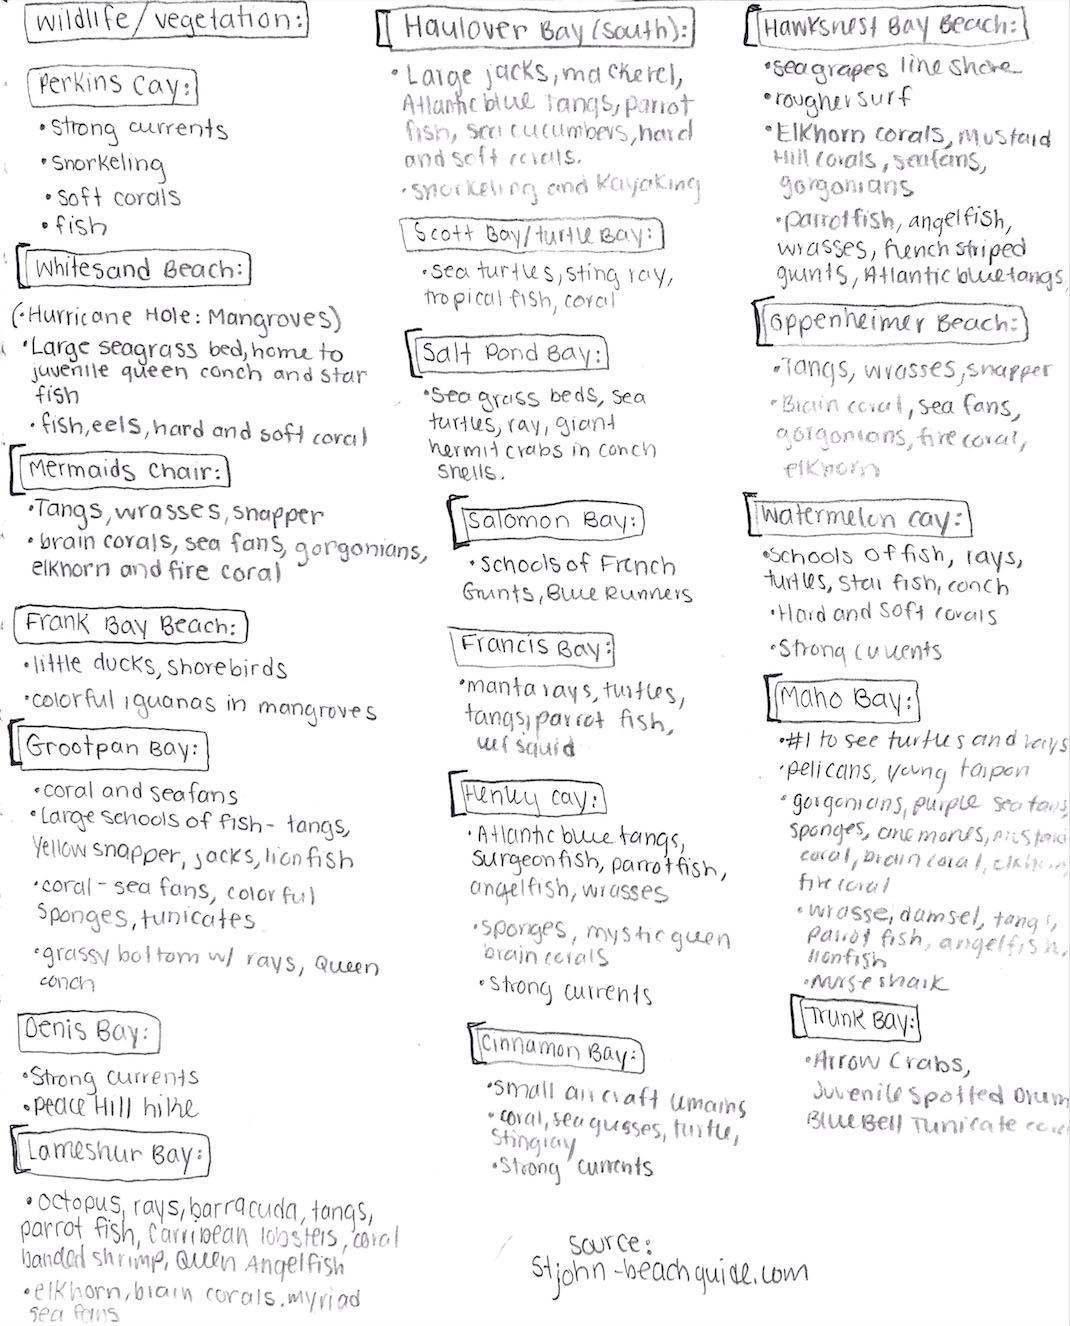 Wildlife/vegetation:
Perkins Cay:
• Strong currents
• Snorkeling
• soft corals
• fish
Whitesand Beach:
(• Hurricane Hole: Mangroves)
• Large seagrass bed, home to
juvenile queen conch and star
fish
• fish, eels, hard and soft coral
Mermaids Chair:
• Tangs, wrasses, snapper
• brain corals, sea fans, gorgonians,
elkhorn and fire coral
Frank Bay Beach:
• little ducks, shorebirds
• colorful iguanas in mangroves
Grootpan Bay:
• coral and seafans
• Large schools of fish - tangs,
Yellow snapper, jacks, lionfish
• coral - sea fans, colorful
sponges, tunicates
• grassy bottom w/ rays, Queen
conch
Denis Bay:
• Strong currents
• Peace Hill hike
Lameshur Bay:
• octopus, rays, barracuda, tangs,
parrot fish, Carribean lobsters, coral
banded shrimp, Queen Angelfish
• elkhorn, brain corals, myriad
sea fans
Haulover Bay (South):
• Large jacks, mackerel,
Atlantic blue Tangs, parrot
fish, sea cucumbers, hard
and soft corals.
• snorkeling and Kayaking
Scott Bay/turtle Bay:
• sea turtles, sting ray,
tropical fish, coral
Salt Pond Bay:
• Sea grass beds, sea
turtles, ray, giant
hermit crabs in conch
shells.
Salomon Bay:
• Schools of French
Grunts, Blue Runners
Francis Bay:
• manta rays, turtles,
tangs, parrot fish,
squid
Henley Cay:
• Atlantic blue tangs,
surgeonfish, parrotfish,
angelfish, wrasses
• sponges, mystic queen
brain corals
• Strong currents
Cinnamon Bay:
• small aircraft remains
• coral, seagrasses, turtle,
Stingray
• Strong currents
source:
stjohn-beachguide.com
Hawksnest Bay Beach:
• seagrapes line shore
• rougher surf
• Elkhorn corals, Mustard
Hill corals, seafans,
gorgonians
• parrotfish, angelfish,
wrasses, french striped
grunts, Atlantic bluetangs,
Oppenheimer Beach:
• Tangs, wrasses, snapper
• Brain coral, sea fans,
gorgonians, fire coral,
elkhorn
Watermelon Cay:
• Schools of fish, rays,
turtles, star fish, conch
• Hard and soft corals
• Strong currents
Maho Bay:
• #1 to see turtles and rays
• pelicans, young tarpon
• gorgonians, purple sea fans,
sponges, anemones, mustard
coral, brain coral, elkhorn,
fire coral
• wrasse, damsel, tangs,
parrot fish, angelfish,
lionfish
• nurse shark
Trunk Bay:
• Arrow Crabs,
Juvenile Spotted Drum
Blue Bell Tunicate